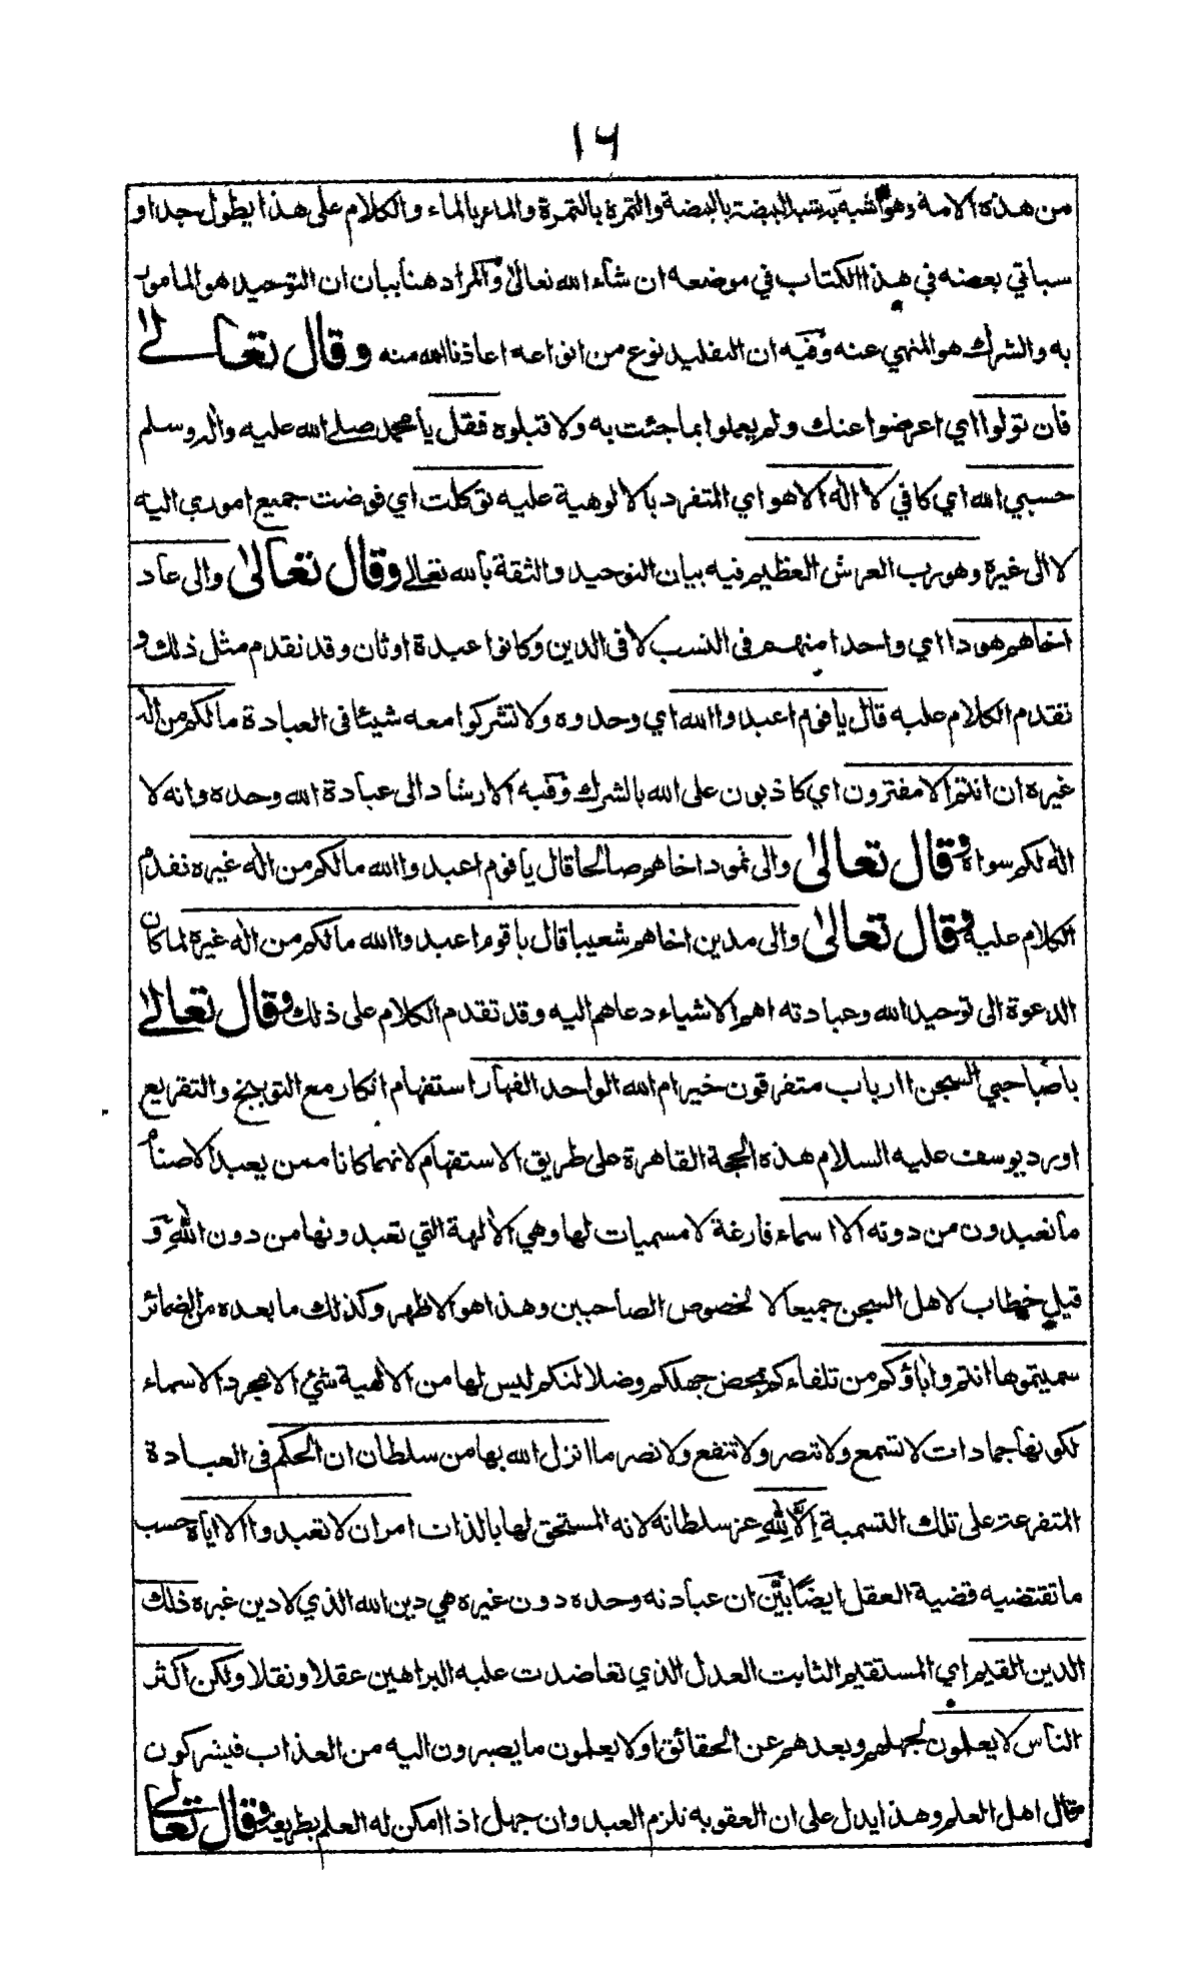 ١٦
من هذه الامة وهو اشبه به شبه البيضة بالبيضة والتمرة بالتمرة والماء بالماء والكلام على هذا يطول جدا و
سيأتي بعضه في هذا الكتاب في موضعه ان شاء الله تعالى والمراد هنا بيان ان التوحيد هو المامور
به والشرك هو المنهي عنه وفيه ان التقليد نوع من انواعه اعاذنا الله منه وقال تعالى
فان تولوا اي اعرضوا عنك ولم يعملوا بما جئت به ولا قبلوه فقل يا محمد صلى الله عليه واله وسلم
حسبي الله اي كافي لا اله الا هو اي المتفرد بالالوهية عليه توكلت اي فوضت جميع اموري اليه
لا الى غيره وهو رب العرش العظيم فيه بيان التوحيد والثقة بالله تعالى وقال تعالى والى عاد
اخاهم هودا اي واحدا منهم في النسب لا في الدين وكانوا عبدة اوثان وقد تقدم مثل ذلك و
تقدم الكلام عليه قال يا قوم اعبدوا الله اي وحدوه ولا تشركوا معه شيئا في العبادة مالكم من اله
غيره ان انتم الا مفترون اي كاذبون على الله بالشرك وفيه الارشاد الى عبادة الله وحده وانه لا
اله لكم سواه وقال تعالى والى ثمود اخاهم صالحا قال يا قوم اعبدوا الله مالكم من اله غيره تقدم
الكلام عليه وقال تعالى والى مدين اخاهم شعيبا قال يا قوم اعبدوا الله مالكم من اله غيره لما كان
الدعوة الى توحيد الله وعبادته اهم الاشياء دعاهم اليه وقد تقدم الكلام على ذلك وقال تعالى
يا صاحبي السجن اارباب متفرقون خير ام الله الواحد القهار استفهام انكار مع التوبيخ والتقريع
اورد يوسف عليه السلام هذه الحجة القاهرة على طريق الاستفهام لانهما كانا ممن يعبد الاصنام
ما تعبدون من دونه الا اسماء فارغة لا مسميات لها وهي الالهة التي تعبدونها من دون الله و
قيل خطاب لاهل السجن جميعا لا لخصوص الصاحبين وهذا هو الاظهر وكذلك ما بعده من الضمائر
سميتموها انتم واباؤكم من تلقاءكم بمحض جهلكم وضلالتكم ليس لها من الالهية شئ الا مجرد الاسماء
لكونها جمادات لا تسمع ولا تبصر ولا تنفع ولا تضر ما انزل الله بها من سلطان ان الحكم في العبادة
المتفرعة على تلك التسمية الا لله عز سلطانه لانه المستحق لها بالذات امر ان لا تعبدوا الا اياه حسب
ما تقتضيه قضية العقل ايضا بين ان عبادته وحده دون غيره هي دين الله الذي لا دين غيره ذلك
الدين القيم اي المستقيم الثابت العدل الذي تعاضدت عليه البراهين عقلا ونقلا ولكن اكثر
الناس لا يعلمون لجهلهم وبعدهم عن الحقائق او لا يعلمون ما يصيرون اليه من العذاب فيشركون
قال اهل العلم وهذا يدل على ان العقوبه تلزم العبد وان جهل اذا امكن له العلم بطريقه وقال تعالى